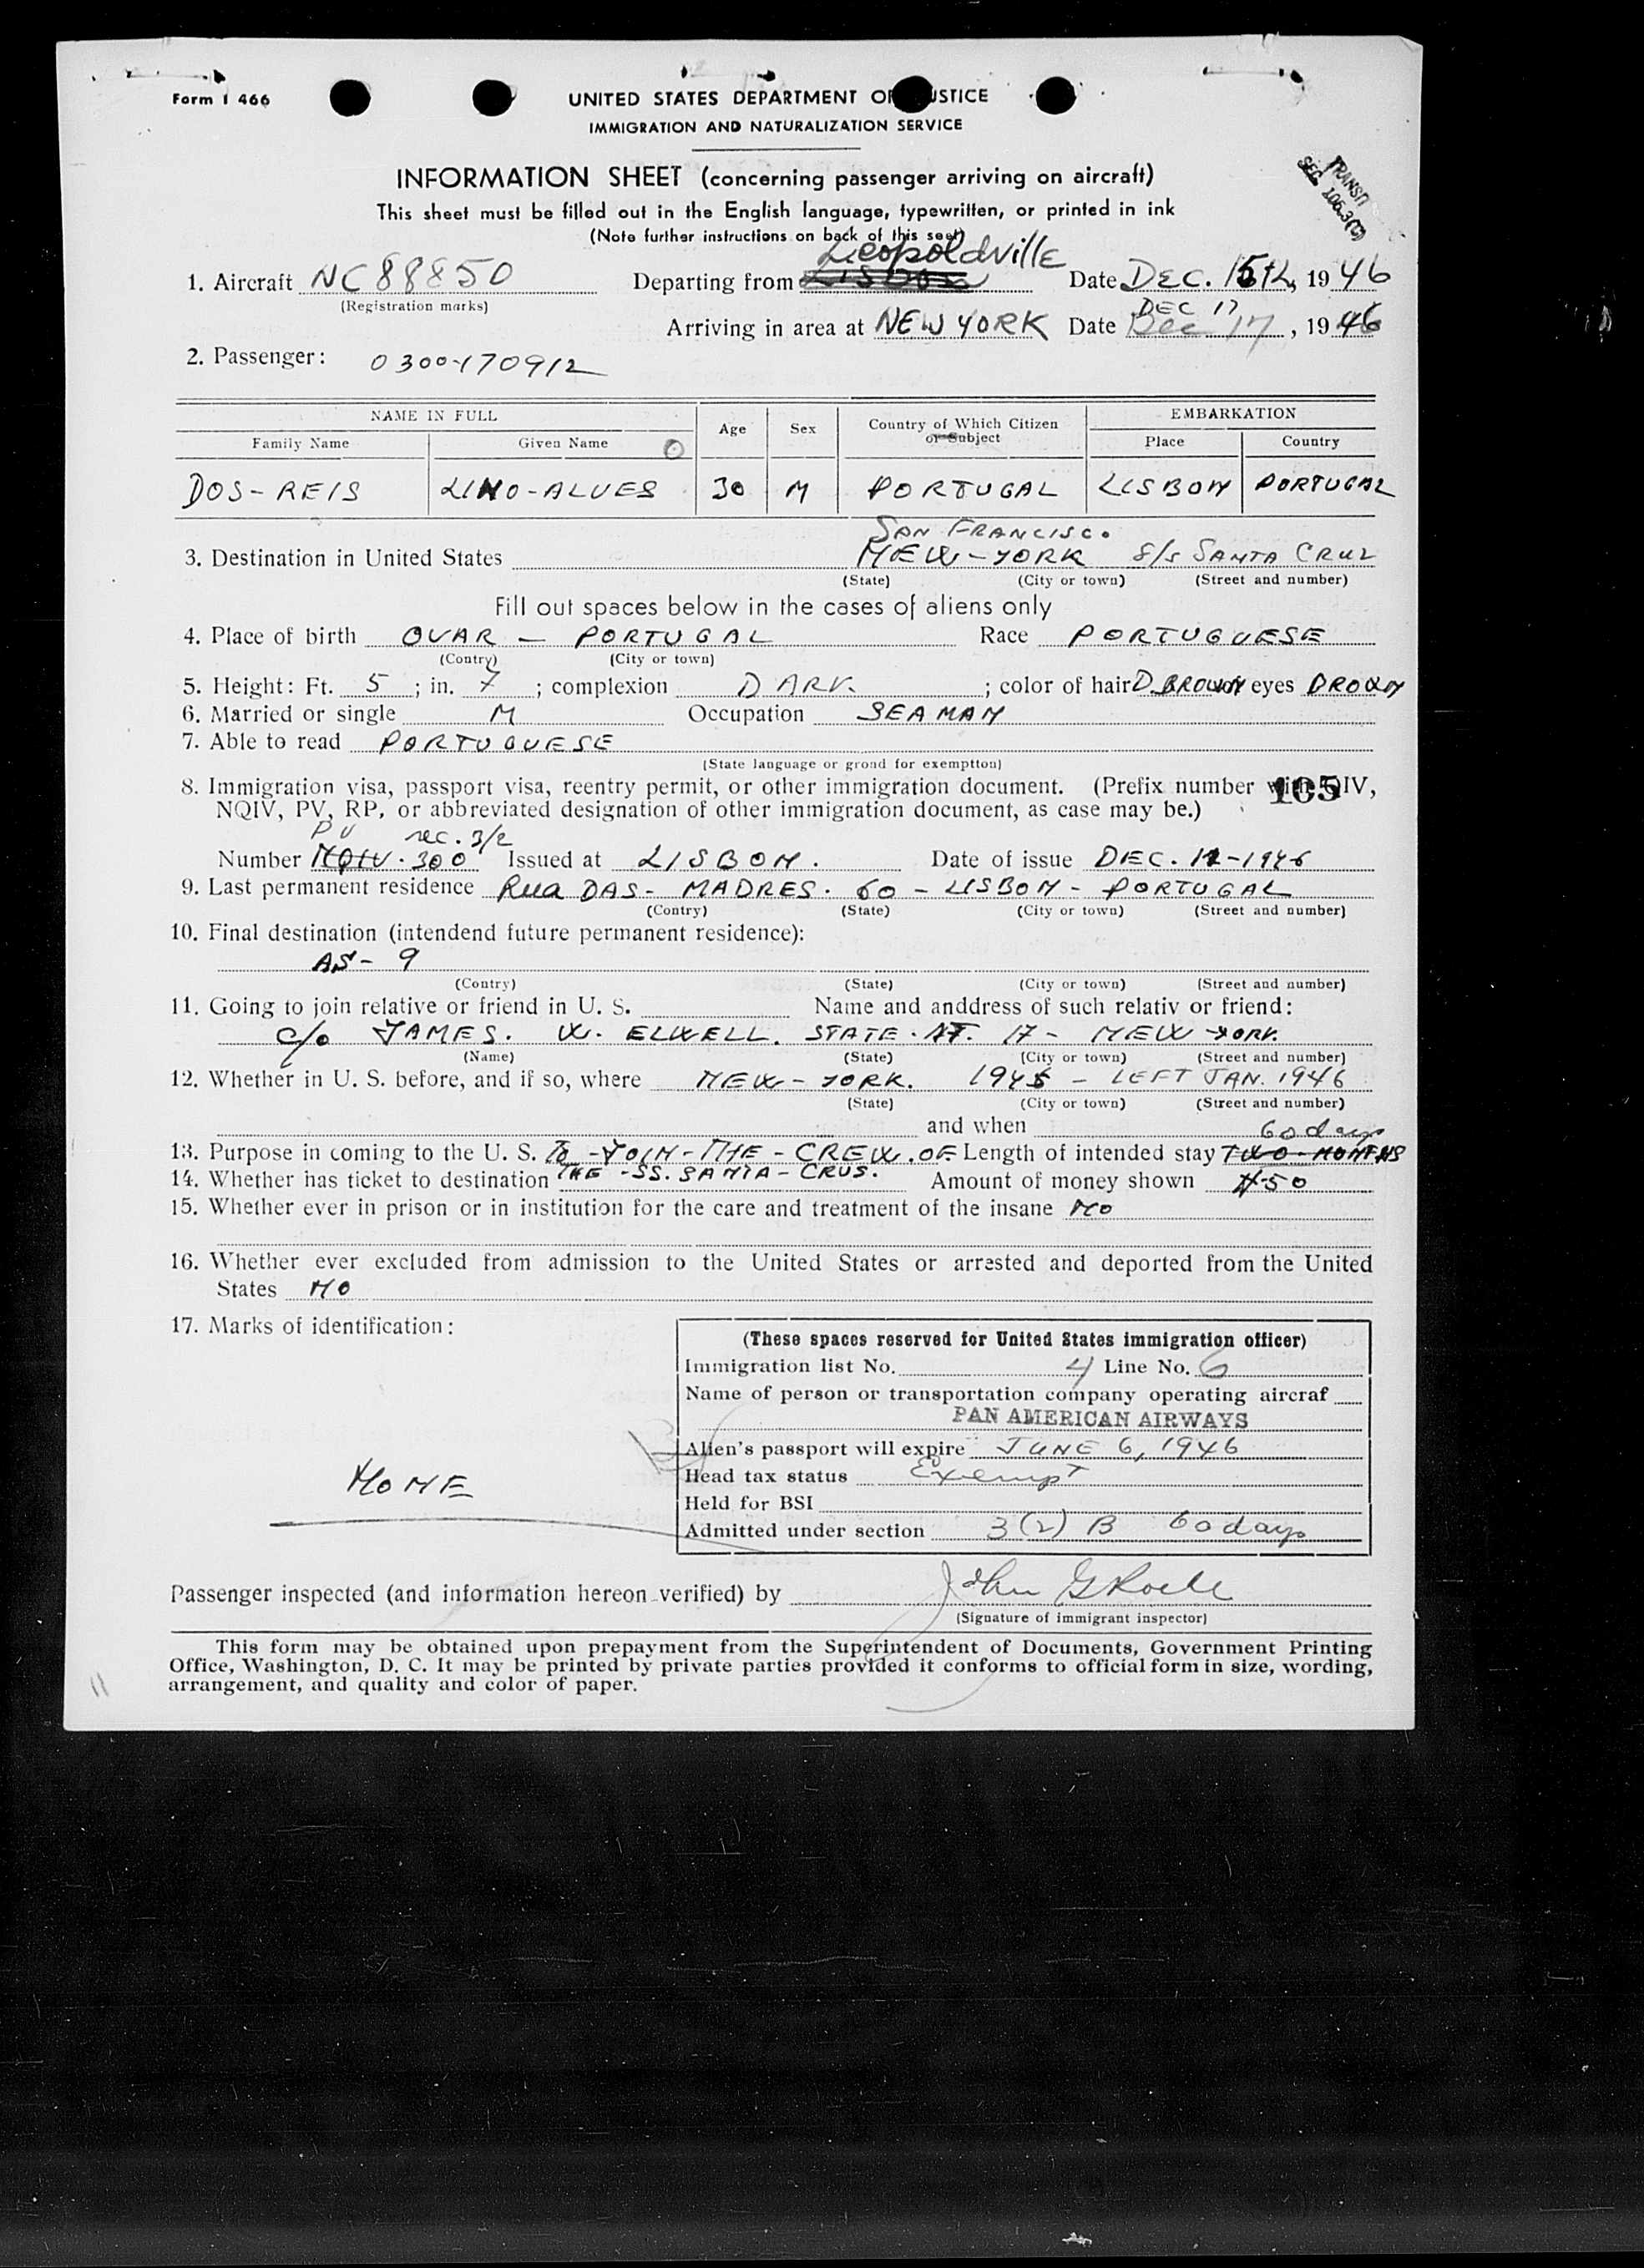 Form I 466
UNITED STATES DEPARTMENT OF JUSTICE
IMMIGRATION AND NATURALIZATION SERVICE
INFORMATION SHEET (concerning passenger arriving on aircraft)
This sheet must be filled out in the English language, typewritten, or printed in ink
(Note further instructions on back of this seet)
TRANSIT
SEC. 106.3(C)
Leopoldville
1. Aircraft NC88850 Departing from LISBON Date DEC. 15th, 1946
(Registration marks)
DEC 17
Arriving in area at NEW YORK Date Dec 17, 1946
2. Passenger: 0300-170912
NAME IN FULL Age Sex Country of Which Citizen or Subject EMBARKATION
Family Name Given Name Place Country
DOS-REIS LINO-ALVES 30 M PORTUGAL LISBON PORTUGAL
SAN FRANCISCO
3. Destination in United States NEW-YORK S/S SANTA CRUZ
(State) (City or town) (Street and number)
Fill out spaces below in the cases of aliens only
4. Place of birth OVAR - PORTUGAL Race PORTUGUESE
(Contry) (City or town)
5. Height: Ft. 5; in. 7; complexion DARK; color of hair D.BROWN eyes BROWN
6. Married or single M Occupation SEAMAN
7. Able to read PORTUGUESE
(State language or grond for exemptton)
8. Immigration visa, passport visa, reentry permit, or other immigration document. (Prefix number with QIV,
105
NQIV, PV, RP, or abbreviated designation of other immigration document, as case may be.)
PV sec. 3/2
Number NQIV. 300 Issued at LISBON. Date of issue DEC. 12-1946
9. Last permanent residence Rua DAS- MADRES. 60 - LISBON - PORTUGAL
(Contry) (State) (City or town) (Street and number)
10. Final destination (intendend future permanent residence):
AS- 9
(Contry) (State) (City or town) (Street and number)
11. Going to join relative or friend in U. S. Name and anddress of such relativ or friend:
c/o JAMES. W. ELWELL. STATE. ST. 17 - NEW YORK.
(Name) (State) (City or town) (Street and number)
12. Whether in U. S. before, and if so, where NEW-YORK. 1945 - LEFT JAN. 1946
(State) (City or town) (Street and number)
and when
60 days
13. Purpose in coming to the U. S. To -JOIN-THE-CREW.OF Length of intended stay TWO-MONTHS
14. Whether has ticket to destination THE -SS. SANTA-CRUS. Amount of money shown $50
15. Whether ever in prison or in institution for the care and treatment of the insane NO
16. Whether ever excluded from admission to the United States or arrested and deported from the United
States NO
17. Marks of identification:
NONE
(These spaces reserved for United States immigration officer)
Immigration list No. 4 Line No. 6
Name of person or transportation company operating aircraf
PAN AMERICAN AIRWAYS
Alien's passport will expire JUNE 6, 1946
Head tax status Exempt
Held for BSI
Admitted under section 3(2) B 60 days
Passenger inspected (and information hereon verified) by John G
(Signature of immigrant inspector)
This form may be obtained upon prepayment from the Superintendent of Documents, Government Printing
Office, Washington, D. C. It may be printed by private parties provided it conforms to official form in size, wording,
arrangement, and quality and color of paper.
11